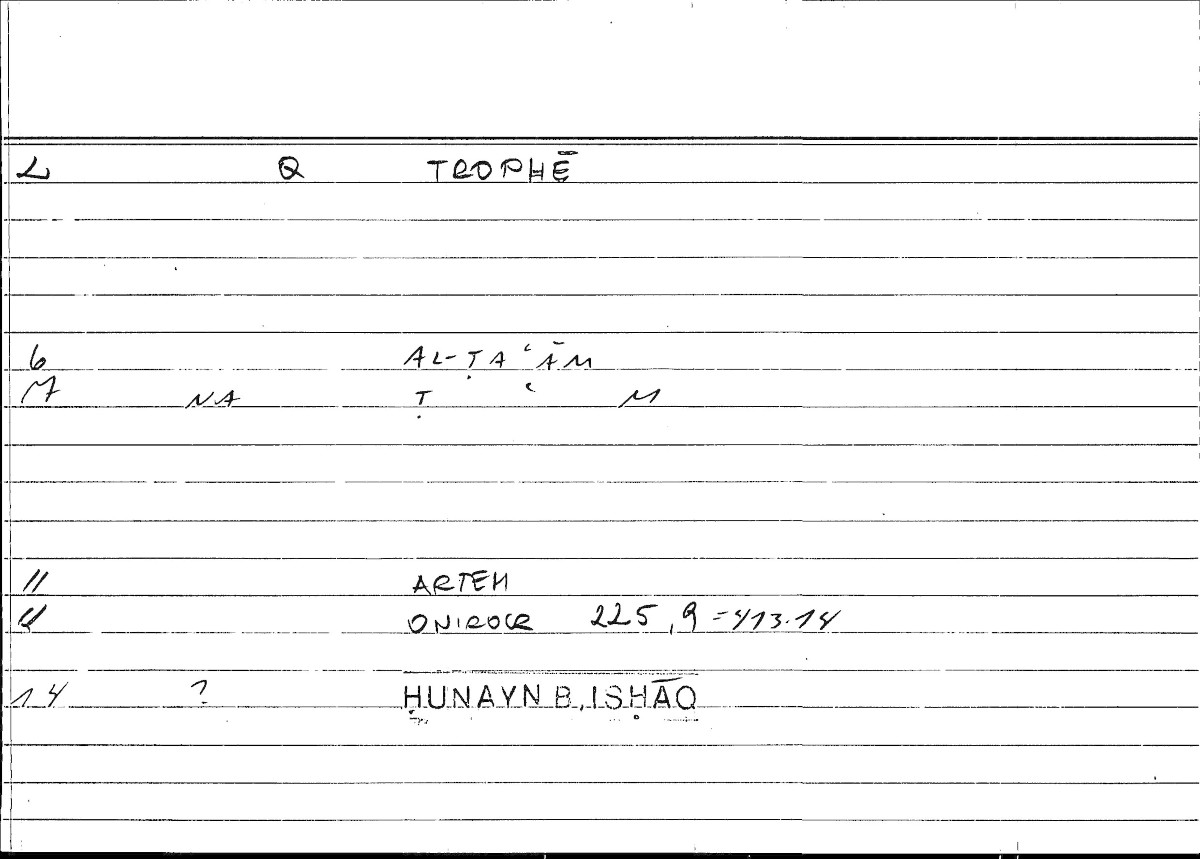 2 Q TROPHĒ
6 AL-ṬAʿĀM
7 NA Ṭ ʿ M
11 ARTEM
12 ONIROCR 225,9=413.14
14 ? ḤUNAYN B. ISḤĀQ